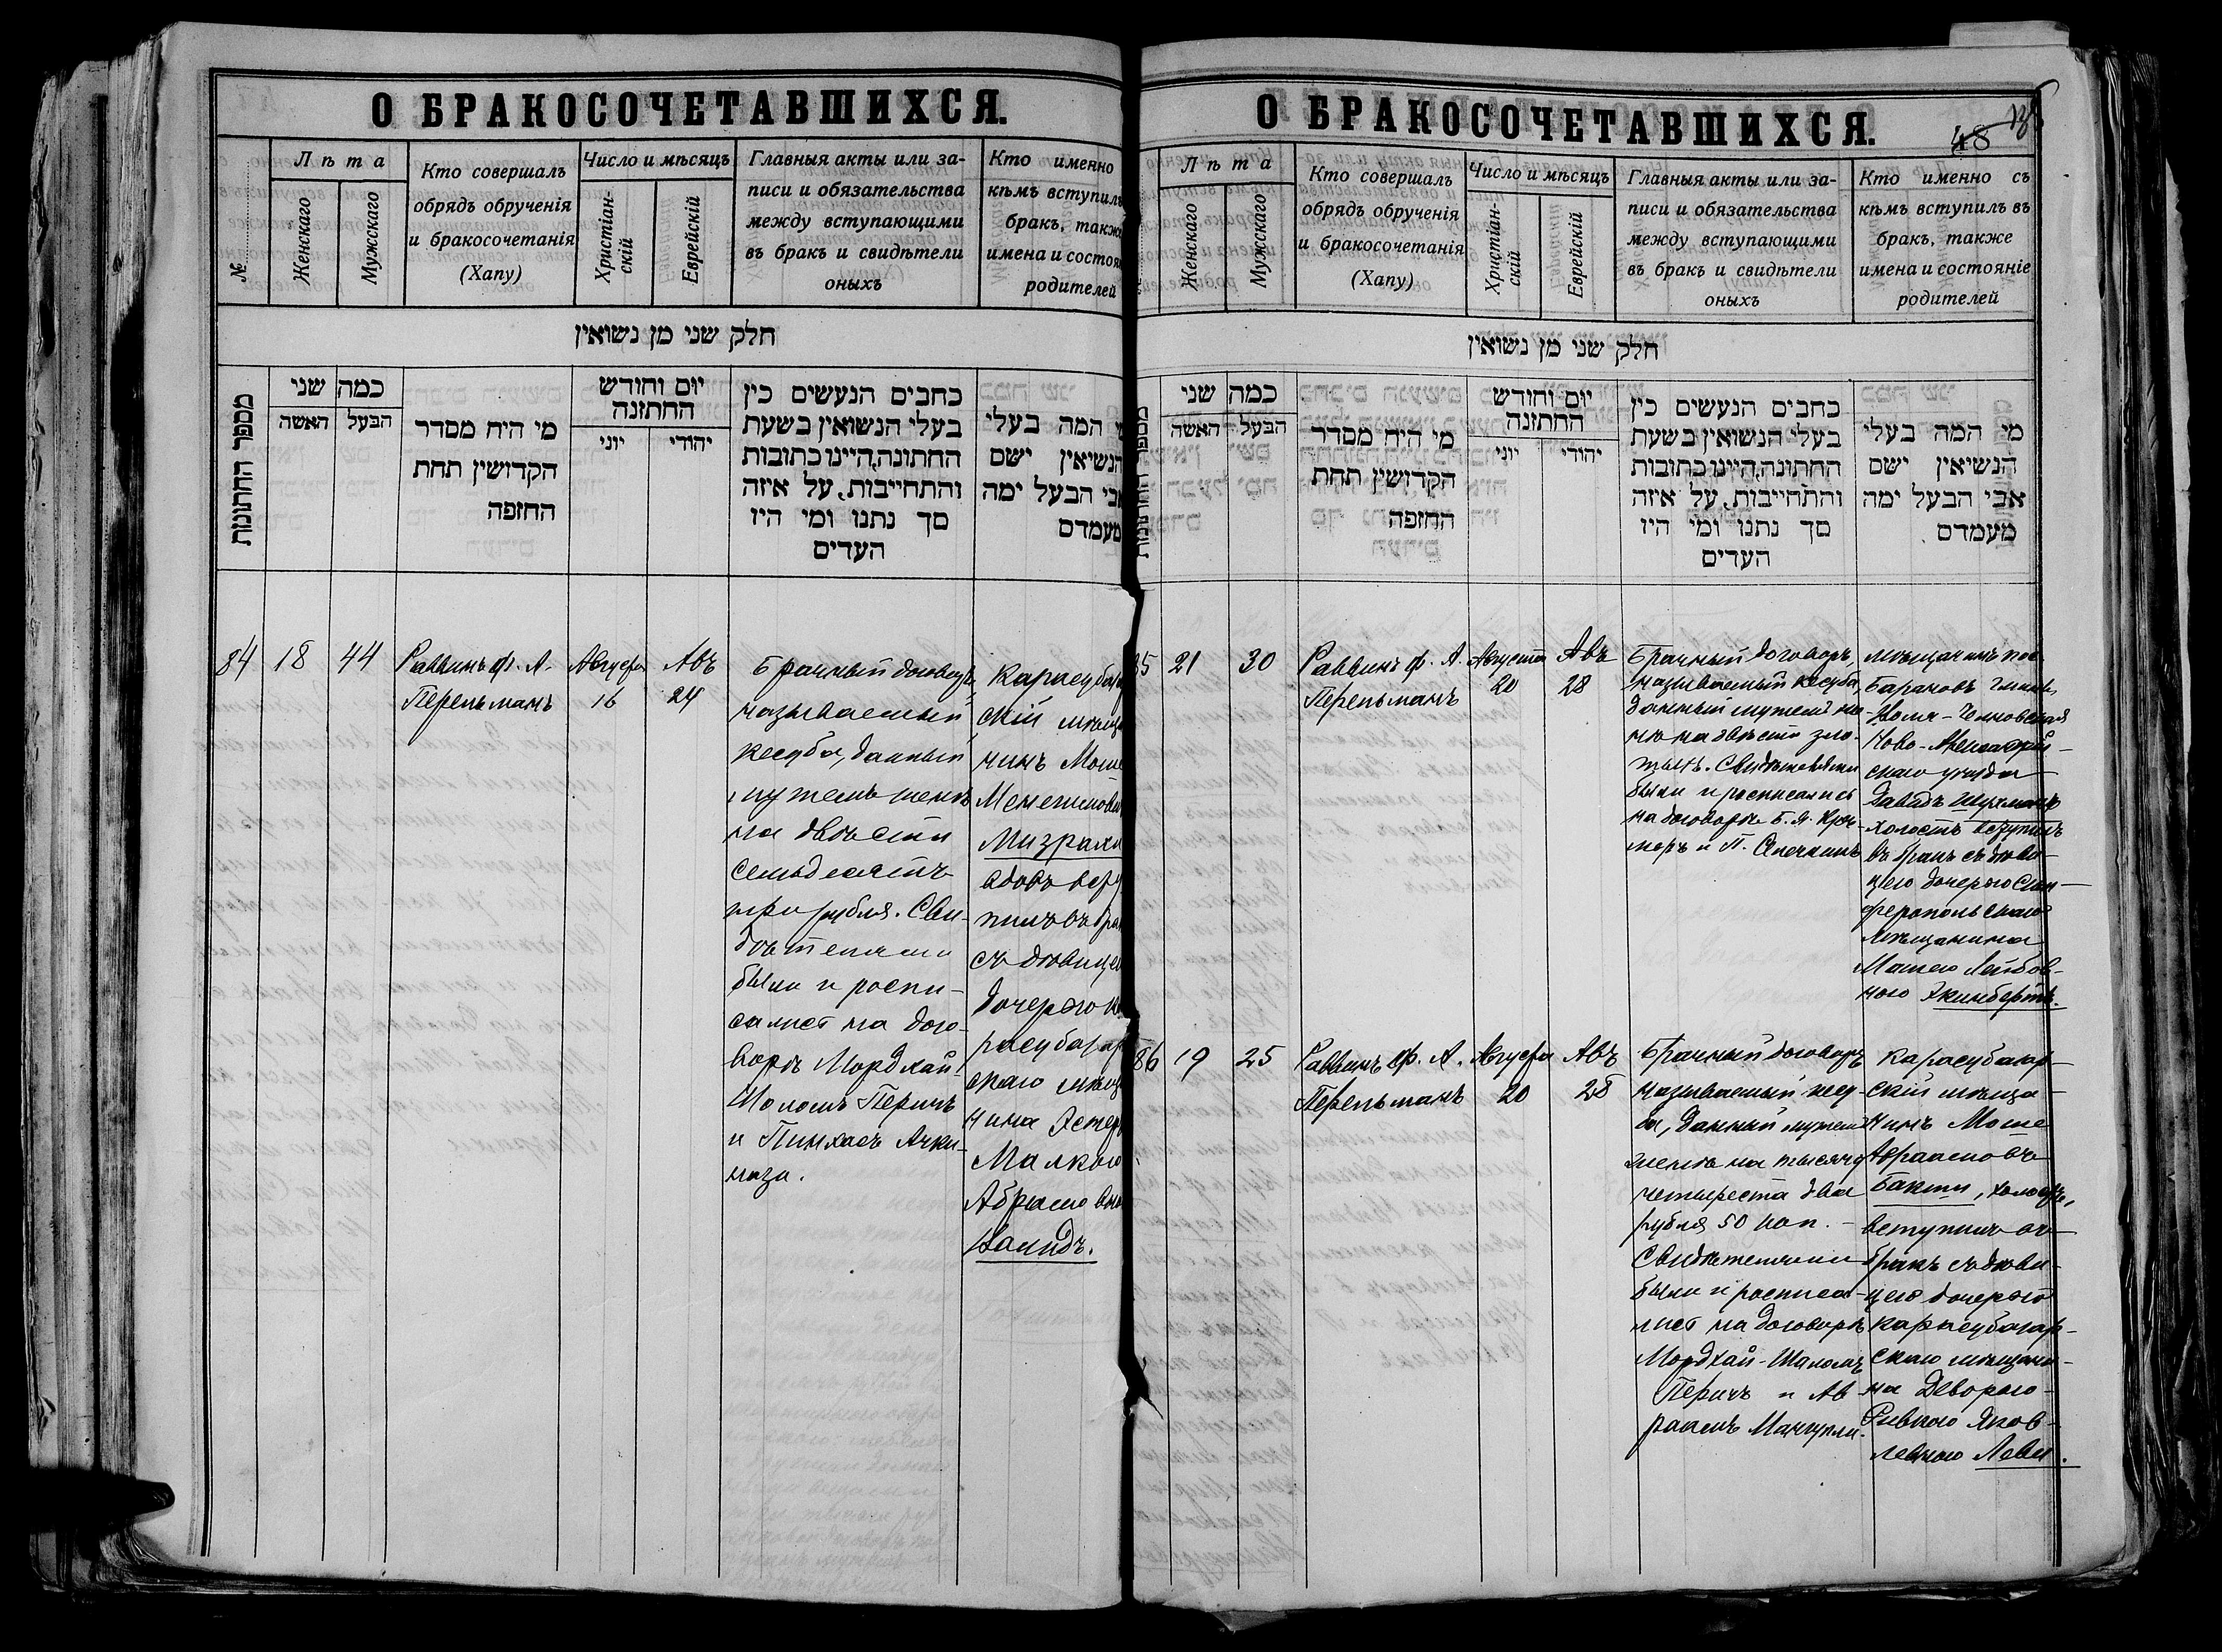 О БРАКОСОЧЕТАВШИХСЯ.
№
Лѣта
Женскаго
Мужскаго
Кто совершалъ
обрядъ обрученія
и бракосочетанія
(Хапу)
Число и мѣсяцъ
Христіан-
скій
Еврейскій
Главныя акты или за-
писи и обязательства
между вступающими
въ бракъ и свидѣтели
оныхъ
Кто именно
кѣмъ вступилъ
бракъ, также
имена и состоя
родителей
חלק שני מן נשואין
מספר החתונות
כמה שני
האשה
הבעל
מי היח מסדר
הקדושין תחת
החופה
יום וחודש
החתונה
יוני
יהודי
כתבים הנעשים כין
בעלי הנשואין בשעת
החתונה, היינו כתובות
והתחייבות, על איזה
סך נתנו ומי היו
העדים
המה בעלי
הנשיאין ישם
אבי הבעל ימה
מעמדם
84
18
44
Раввинъ Ф. А.
Перельманъ
Августа
16
Авъ
24
Брачный договоръ,
называемый
кесуба, данный
мужемъ женѣ
на двѣсти
семьдесятъ
три рубля. Сви-
дѣтелями
были и роспи-
ались на дого-
ворѣ Мордхай-
Шоломъ Перичъ
и Пинхасъ Ачки-
нази.
Карасубаза
скій мѣща
нинъ Моше
Менешмови
Мизрахи
вдовъ всту
пилъ въ бра
съ дѣвицей
дочерью Ка
расубазар
скаго мѣща
нина Эстер
Малкою
Абрамовно
Валидъ.
О БРАКОСОЧЕТАВШИХСЯ.
48
Лѣта
Женскаго
Мужскаго
Кто совершалъ
обрядъ обрученія
и бракосочетанія
(Хапу)
Число и мѣсяцъ
Христіан-
скій
Еврейскій
Главныя акты или за-
писи и обязательства
между вступающими
въ бракъ и свидѣтели
оныхъ
Кто именно съ
кѣмъ вступилъ въ
бракъ, также
имена и состояніе
родителей
חלק שני מן נשואין
כמה שני
האשה
הבעל
מי היח מסדר
הקדושין תחת
החופה
יום וחודש
החתונה
יוני
יהודי
כתבים הנעשים כין
בעלי הנשואין בשעת
החתונה, היינו כתובות
והתחייבות, על איזה
סך נתנו ומי היו
העדים
מי המה בעלי
הנשיאין ישם
אבי הבעל ימה
מעמדם
85
21
30
Раввинъ Ф. А.
Перельманъ
Августа
20
Авъ
28
Брачный договоръ,
называемый кесуба,
данный мужемъ же-
нѣ на двѣсти зло-
тыхъ. Свидѣтелями
были и росписались
на договорѣ Б. Я. Кре-
меръ и П.
мѣщанинъ пос.
Барановъ
Ново-Александрій-
скаго уѣзда
Давидъ Шухманъ
холостъ вступилъ
въ бракъ съ дѣви-
цею дочерью Сим-
феропольскаго
мѣщанина
Маtею Лейбов-
ною
86
19
25
Раввинъ Ф. А.
Перельманъ
Августа
20
Авъ
28
Брачный договоръ
называемый кесу-
ба, данный мужемъ
женѣ на тысячу
четыреста два
рубля 50 коп.
Свидѣтелями
были и росписа-
лись на договорѣ
Мордхай-Шаломъ
Перичъ и Ав-
раамъ Мангупли.
Карасубазар-
скій мѣща-
нинъ Моше
Авраамовъ
Бакши, холостъ,
вступилъ въ
бракъ съ дѣви-
цею дочерью
Карасубазар-
скаго мѣщани-
на Деворою-
Ривкою Яков-
левною Леви.